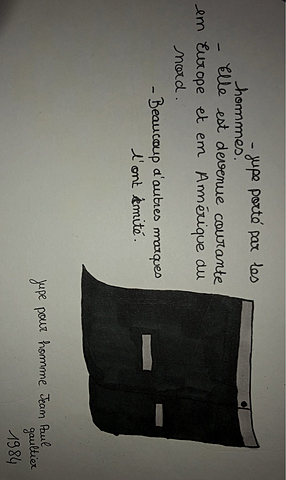 - Jupe porté par les
hommes.
- Elle est devenue courante
em Europe et em Amérique du
Nord.
- Beaucoup d'autres marques
l'ont imité.
Jupe pour homme Jean Paul
gaultier
1984